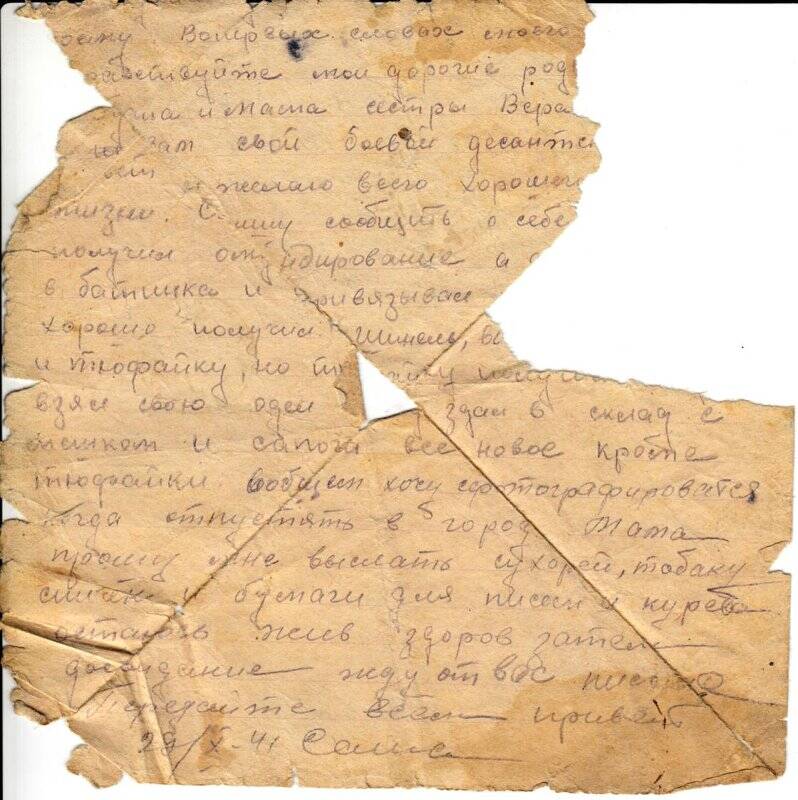 Вопервых словах моего
мои дорогие род
и мама сестры Вера
вам свой боевой десантн
и желаю всего хорошего
жизни. сообщить о себе
получил а
в батинка и привязывал
хорошо получил шинель,
и тюфайку, но
взял свою здал в склад с
мешком и сапоги все новое кроме
тюфайки вобщем хочу сфотографироватся
когда отпустять в город Мама
прошу мне выслать сухорей, табаку
и бумаги для писем и курева
остаюсь жив здоров затем
досвидание жду от вас письмо
Передайте всем привет
29/X-41 Саша